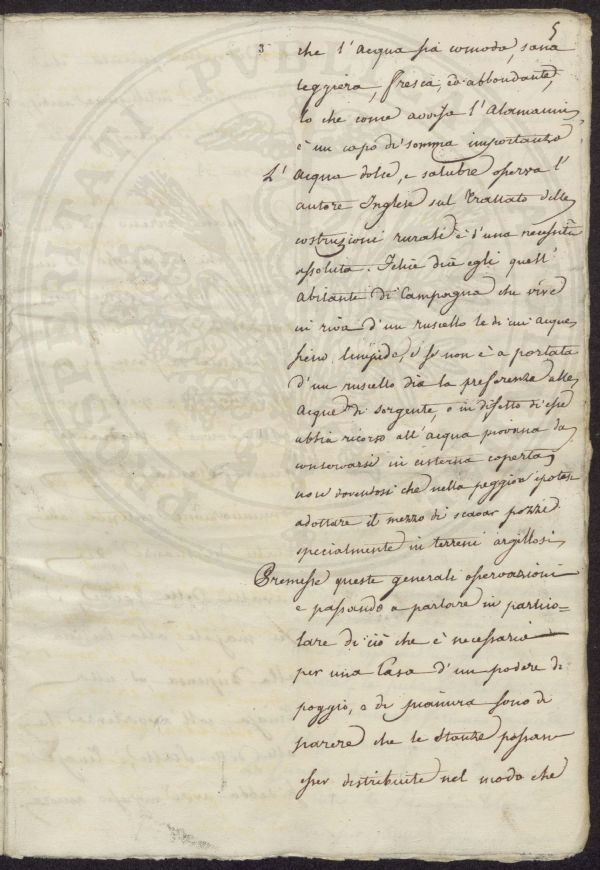 5
3 che l'acqua sia comoda, sana
leggiera, fresca, ed abbondante,
lo che come avvisa l'Alamanni
è un capo di somma importanza
L'acqua dolce, e salubre osserva l'
autore Inglese sul Trattato delle
costruzioni rurali è d'una necessità
assoluta. Felice dice egli quell'
abitante di Campagna che vive
in riva d'un ruscello le di cui acque
sieno limpide, e se non è a portata
d'un ruscello dia la preferenza alle
acque di sorgente, e in difetto di esse
abbia ricorso all'acqua piovana da
conservarsi in cisterna coperta
non dovendosi che nella peggior ipotesi
adottare il mezzo di scavar pozzi
specialmente in terreni argillosi
Premesse queste generali osservazioni
e passando a parlare in partico=
lare di ciò che è necessario
per una Casa d'un podere di
poggio, e di pianura sono di
parere che le stanze possan
esser distribuite nel modo che
PUBLICAE
PROSPERITATI